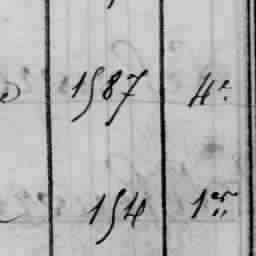 1587 4e
154 1er